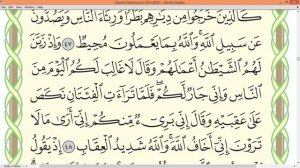 كَالَّذِينَ خَرَجُوا۟ مِن دِيَـٰرِهِم بَطَرًۭا وَرِئَآءَ ٱلنَّاسِ وَيَصُدُّونَ
عَن سَبِيلِ ٱللَّهِ ۚ وَٱللَّهُ بِمَا يَعْمَلُونَ مُحِيطٌۭ ٤٧ وَإِذْ زَيَّنَ
لَهُمُ ٱلشَّيْطَـٰنُ أَعْمَـٰلَهُمْ وَقَالَ لَا غَالِبَ لَكُمُ ٱلْيَوْمَ مِنَ
ٱلنَّاسِ وَإِنِّى جَارٌۭ لَّكُمْ ۖ فَلَمَّا تَرَآءَتِ ٱلْفِئَتَانِ نَكَصَ
عَلَىٰ عَقِبَيْهِ وَقَالَ إِنِّى بَرِىٓءٌۭ مِّنكُمْ إِنِّىٓ أَرَىٰ مَا لَا
تَرَوْنَ إِنِّىٓ أَخَافُ ٱللَّهَ ۚ وَٱللَّهُ شَدِيدُ ٱلْعِقَابِ ٤٨ إِذْ يَقُولُ